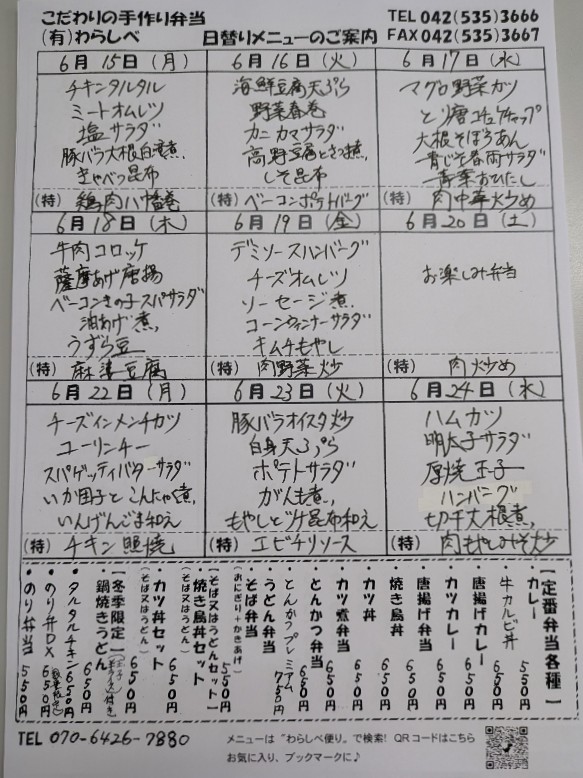 こだわりの手作り弁当
(有)わらしべ
日替りメニューのご案内
TEL 042(535)3666
FAX 042(535)3667
6月15日(月)
チキンタルタル
ミートオムレツ
塩サラダ
豚バラ大根白湯煮
きゃべつ昆布
(特) 鶏肉八幡巻
6月16日(火)
海鮮豆腐天ぷら
野菜春巻
カニカマサラダ
高野豆腐とさつま煮
しそ昆布
(特) ベーコンポテトバーグ
6月17日(水)
マグロ野菜カツ
とり唐コチュケチャップ
大根そぼろあん
青じそ春雨サラダ
青菜おひたし
(特) 肉中華炒め
6月18日(木)
牛肉コロッケ
薩摩あげ唐揚
ベーコンきの子スパサラダ
油あげ煮
うずら豆
(特) 麻婆豆腐
6月19日(金)
デミソースハンバーグ
チーズオムレツ
ソーセージ煮
コーンウィンナーサラダ
キムチもやし
(特) 肉野菜炒
6月20日(土)
お楽しみ弁当
(特) 肉炒め
6月22日(月)
チーズインメンチカツ
ユーリンチー
スパゲッティバターサラダ
いか団子とこんにゃく煮
いんげんごま和え
(特) チキン照焼
6月23日(火)
豚バラオイスタ炒
白身天ぷら
ポテトサラダ
がんも煮
もやしとツナ昆布和え
(特) エビチリソース
6月24日(水)
ハムカツ
明太子サラダ
厚焼玉子
ハンバーグ
切干大根煮
(特) 肉もやしみそ炒
【定番弁当各種】
・カレー 550円
・牛カルビ丼 650円
・唐揚げカレー 650円
・カツカレー 650円
・唐揚げ弁当 650円
・焼き鳥丼 650円
・カツ丼 650円
・カツ煮弁当 650円
・とんかつ弁当 650円
・とんかつプレミアム 750円
・うどん弁当
・そば弁当 550円
(おにぎり+かきあげ)
【そば又はうどんセット】
・焼き鳥丼セット 650円
(そば又はうどん)
・カツ丼セット 650円
(そば又はうどん)
【冬季限定】
・鍋焼きうどん 650円
・タルタルチキン 650円
・のり弁DX 650円
・のり弁当 550円
TEL 070-6426-7880
メニューは“わらしべ便り”で検索! QRコードはこちら
お気に入り、ブックマークに♪